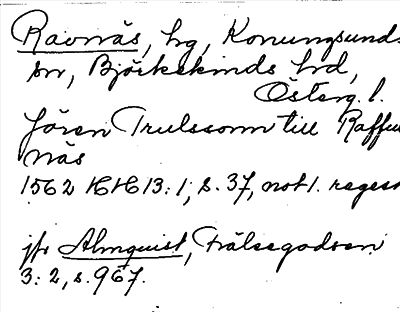 Ravnäs, hg, Konungsunds
sn, Björkekinds hd,
Österg. l.
Jören Trulssonn till Raffu
näs
1562 HH 13:1, s. 37, not 1. regest
jfr Almquist, Frälsegodsen
3:2, s. 967.